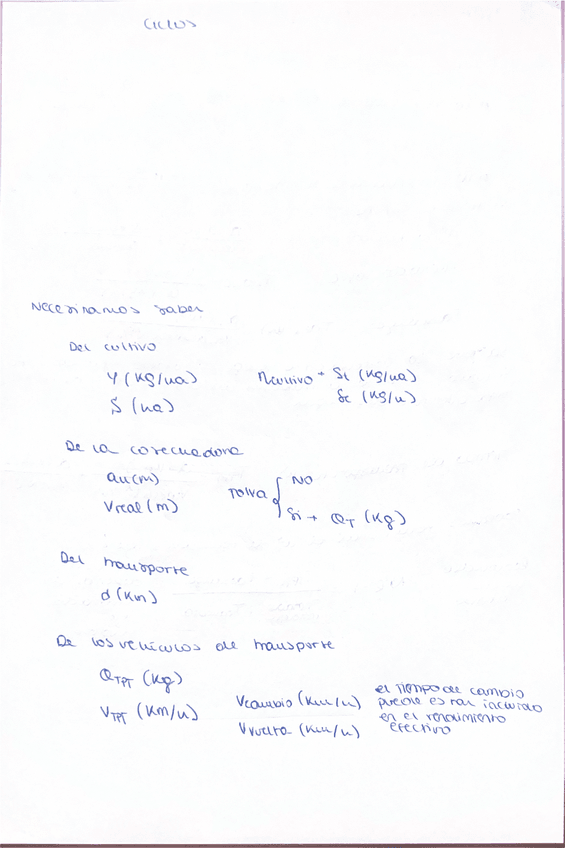 Ciclos
Necesitamos saber
Del cultivo
Y (Kg/ha)
ηcultivo + Si (Kg/ha)
S (ha)
Sc (Kg/h)
De la cosechadora
au(m)
Tolva { NO
Vreal (m)
Si → QT (Kg)
Del transporte
d (Km)
De los vehículos de transporte
QTPT (Kg)
VTPT (Km/h)
Vcambio (Km/h)
el tiempo de cambio
puede estar incluido
en el rendimiento
efectivo
Vvuelta (Km/h)